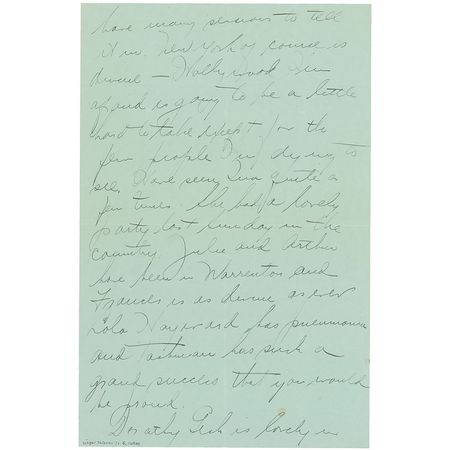 have many reasons to tell
him. New York of course is
divine — Hollywood I'm
afraid is going to be a little
hard to take except for the
few people I'm dying to
see. Have seen quite a
few times. She had a lovely
party last Sunday in the
country. Julie and Arthur
have been in Warrenton and
Frances is as divine as ever
Lola Hayward has pneumonia
and has such a
grand success that you would
be proud.
Dorothy is lovely in